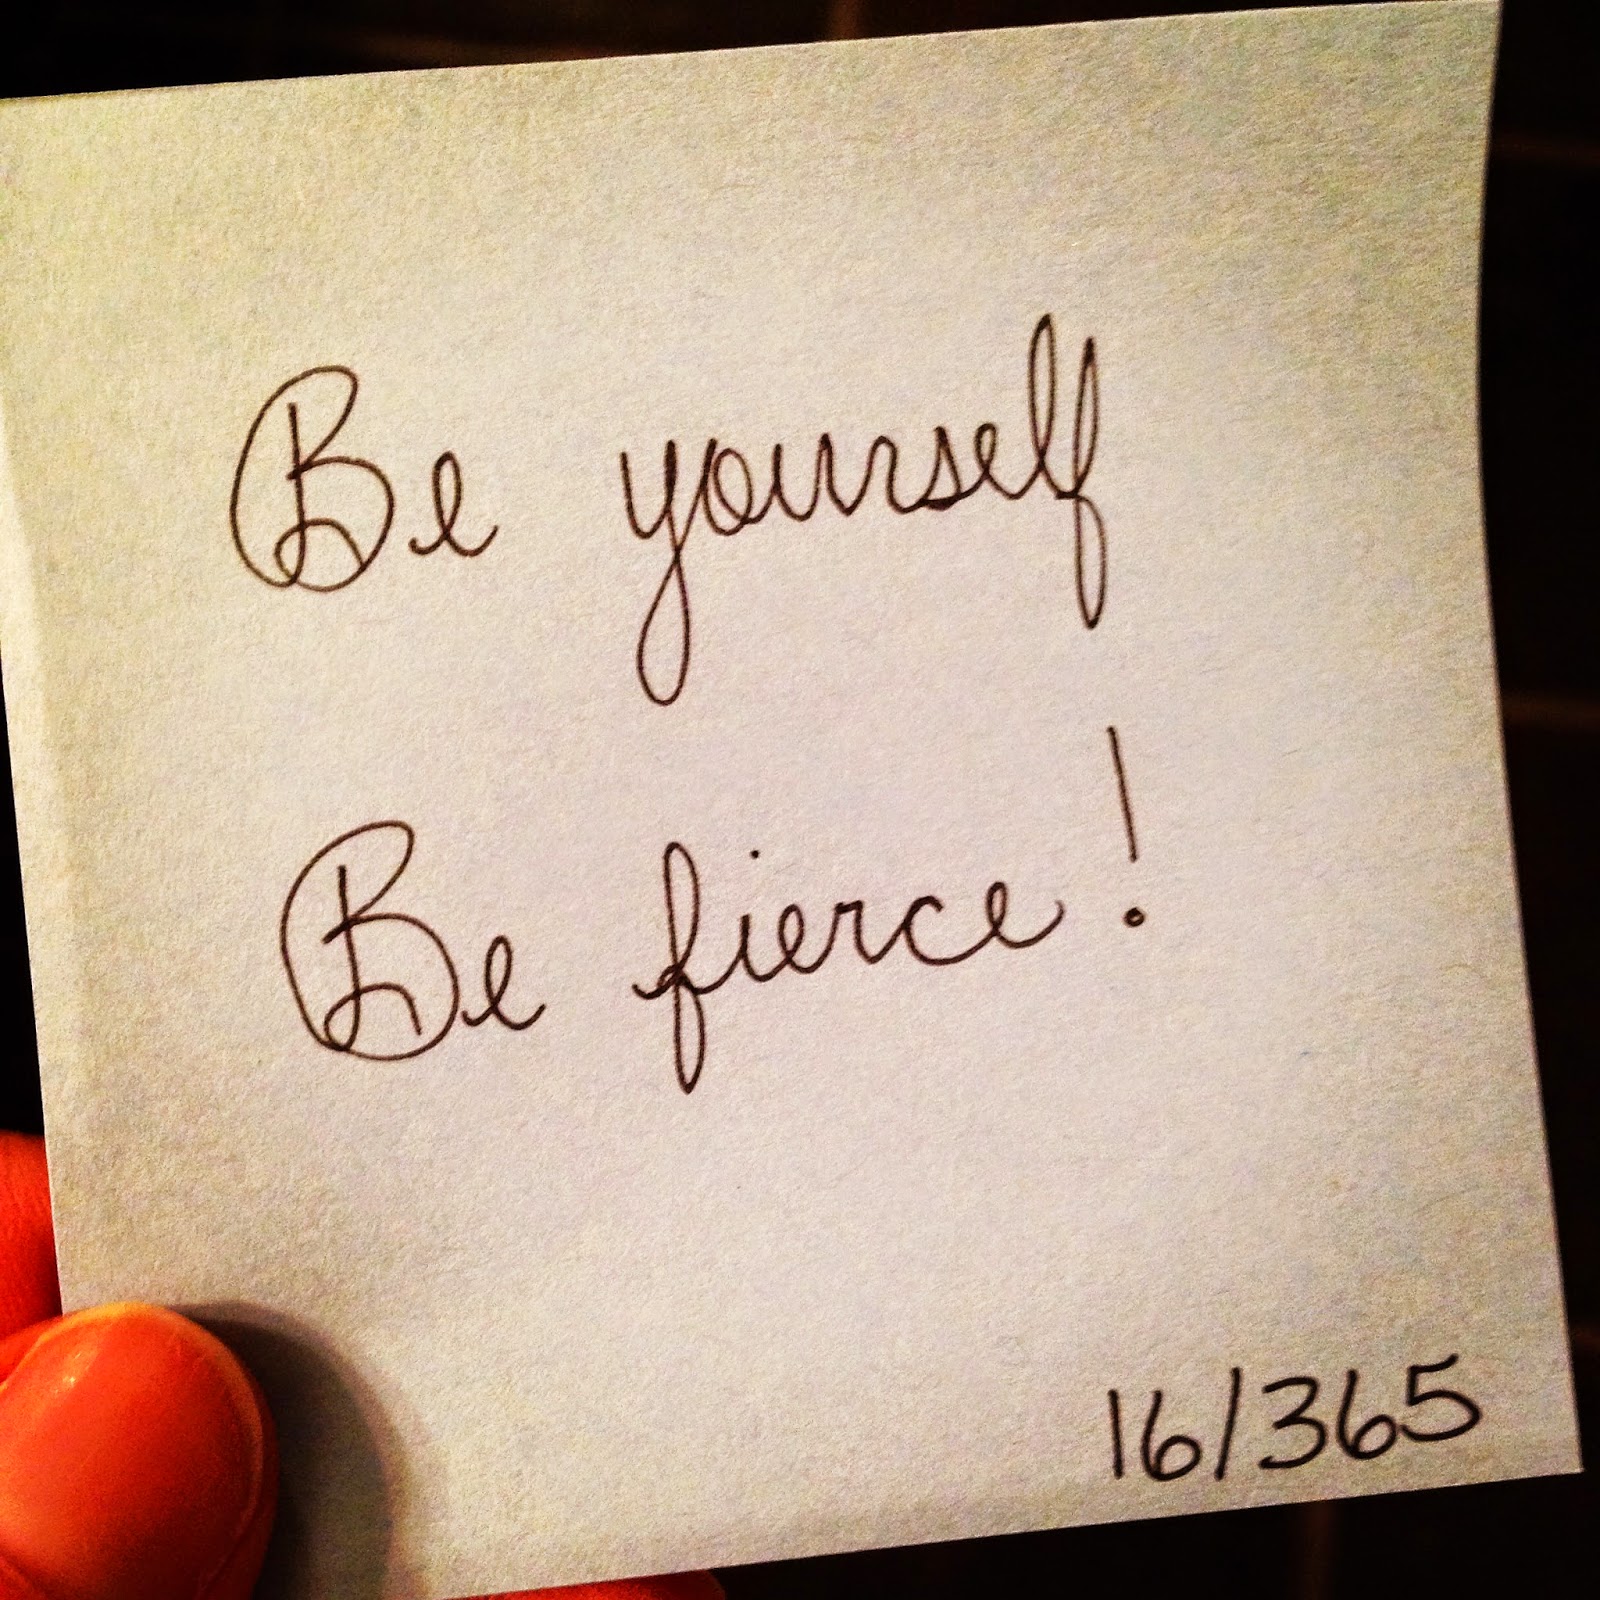 Be yourself
Be fierce!
16/365